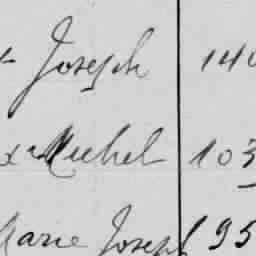 Joseph 140
x Michel 103
Marie Joseph 95